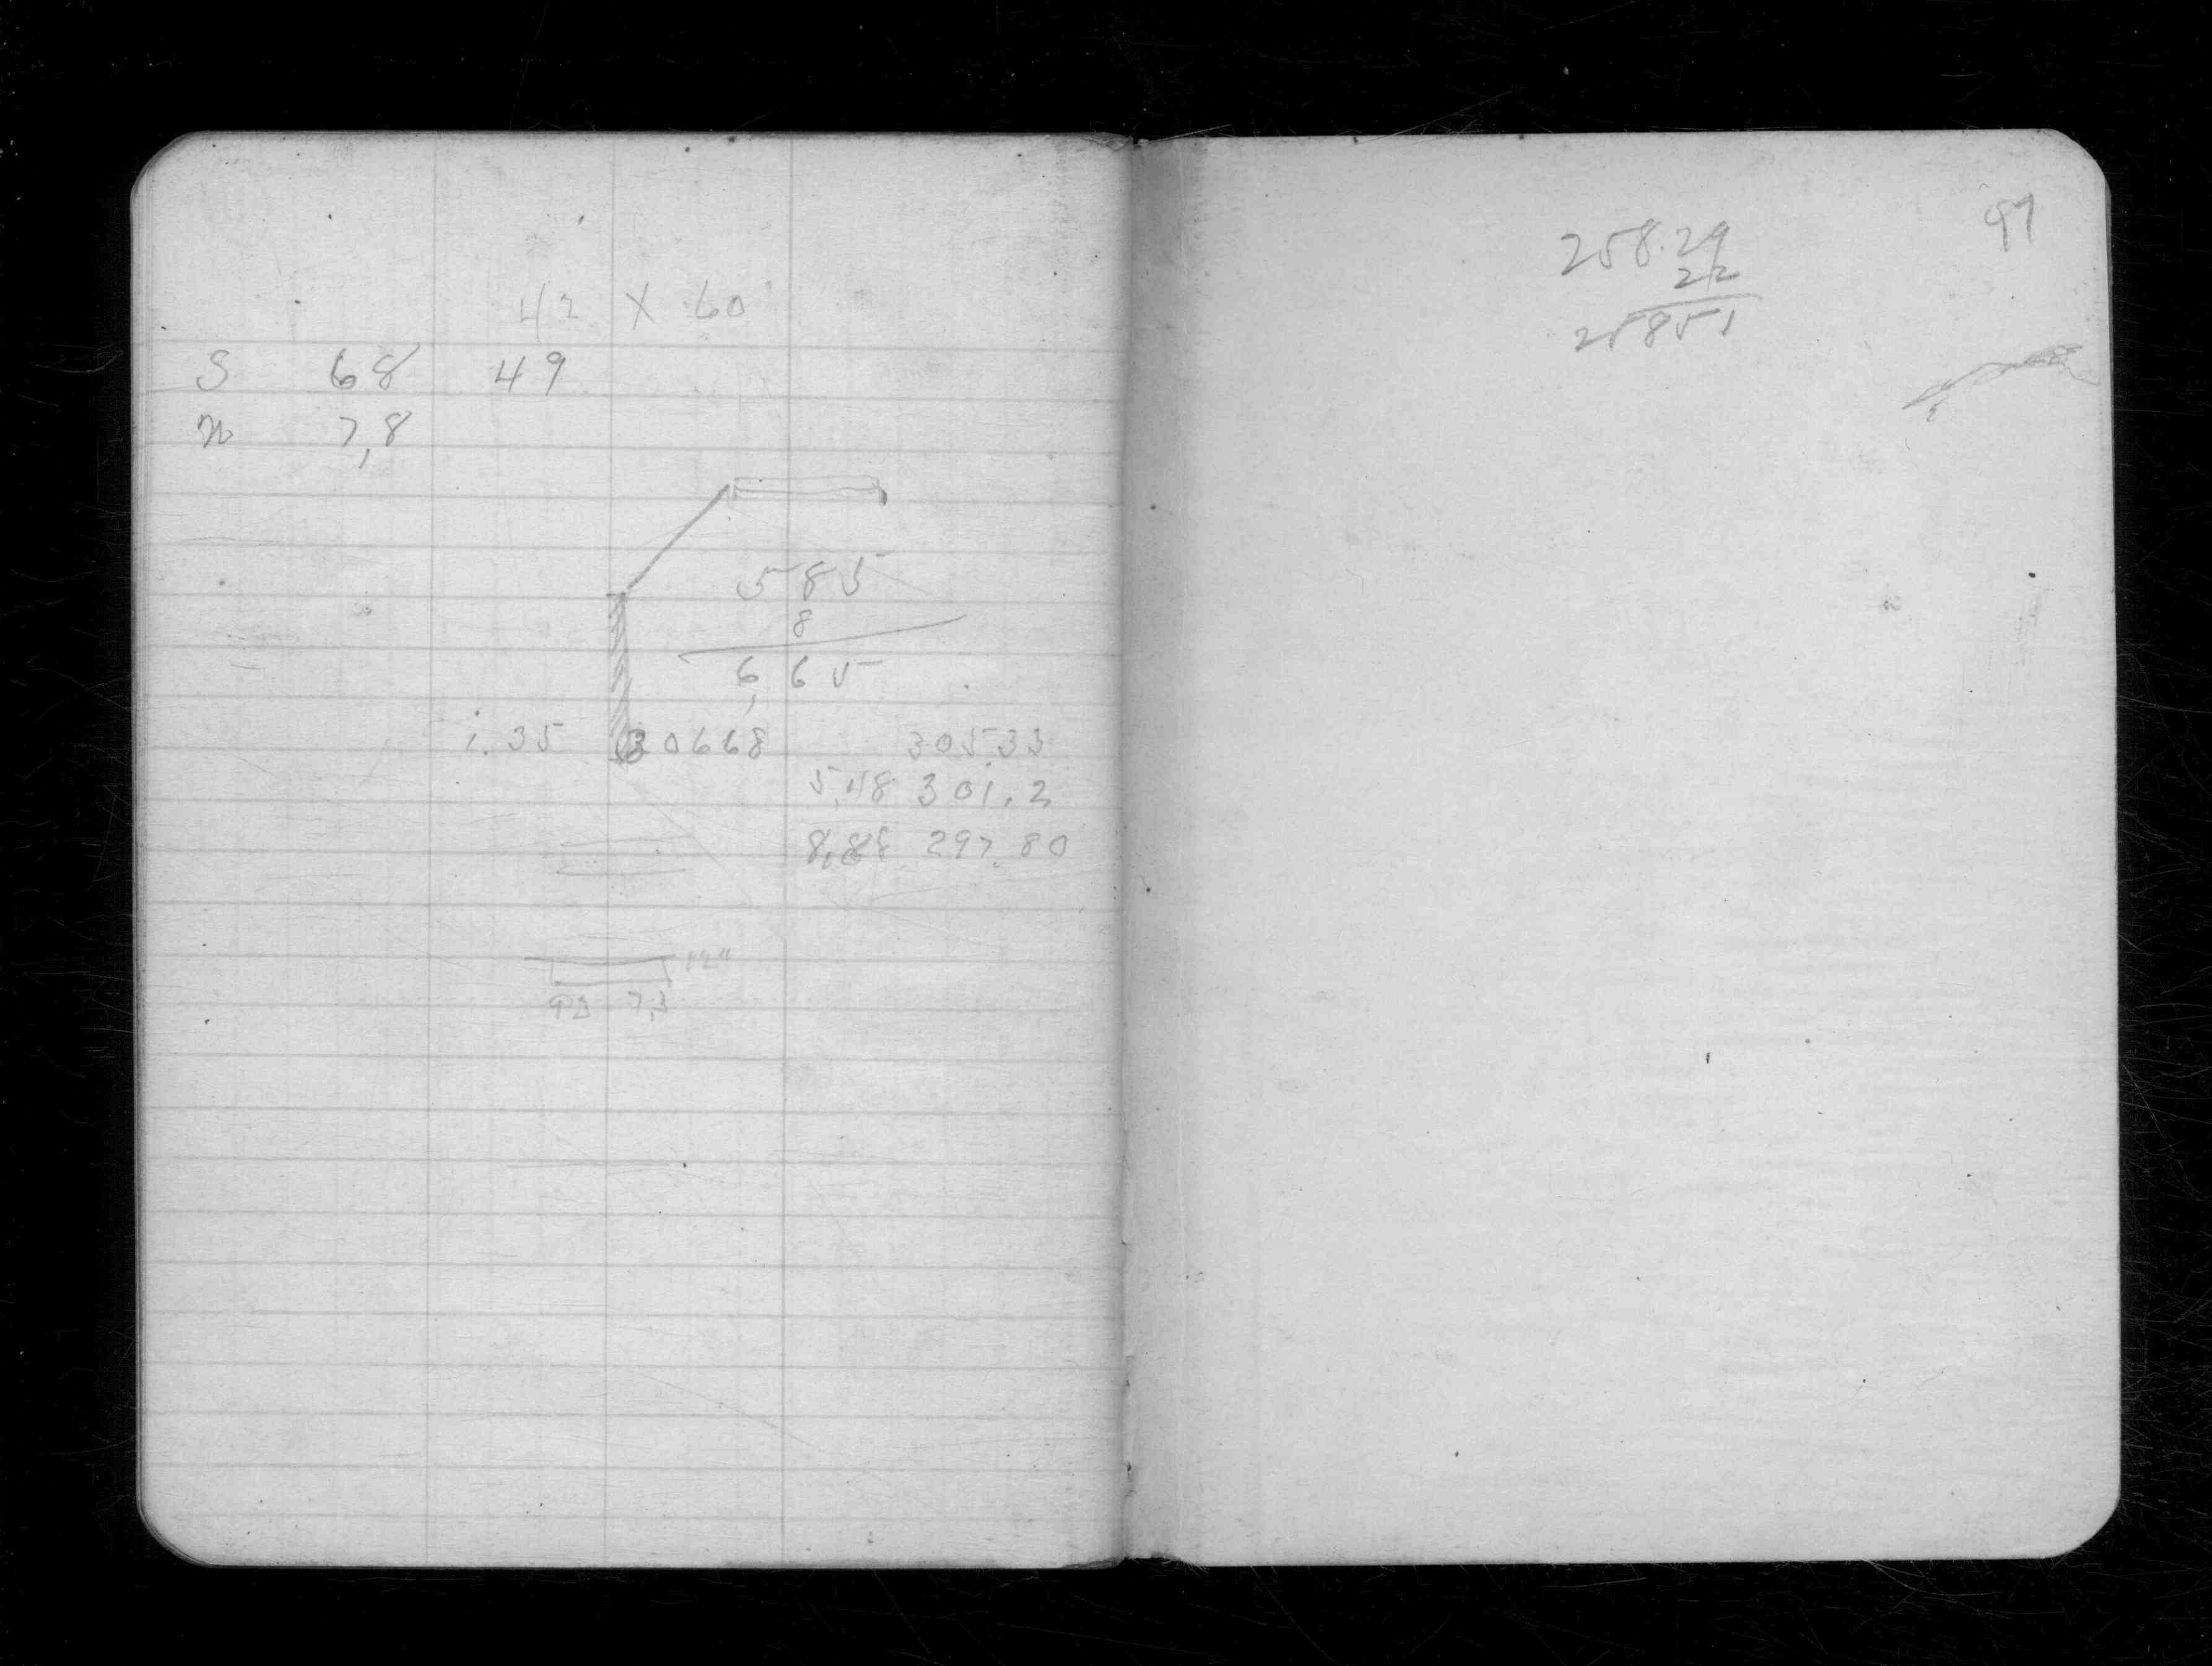 42 X 60
S 68 49
N 7,8
585
8
6,65
1.35 30668 305.33
5,48 301.2
8,88 297.80
12"
7,3
97
258.29
22
25851